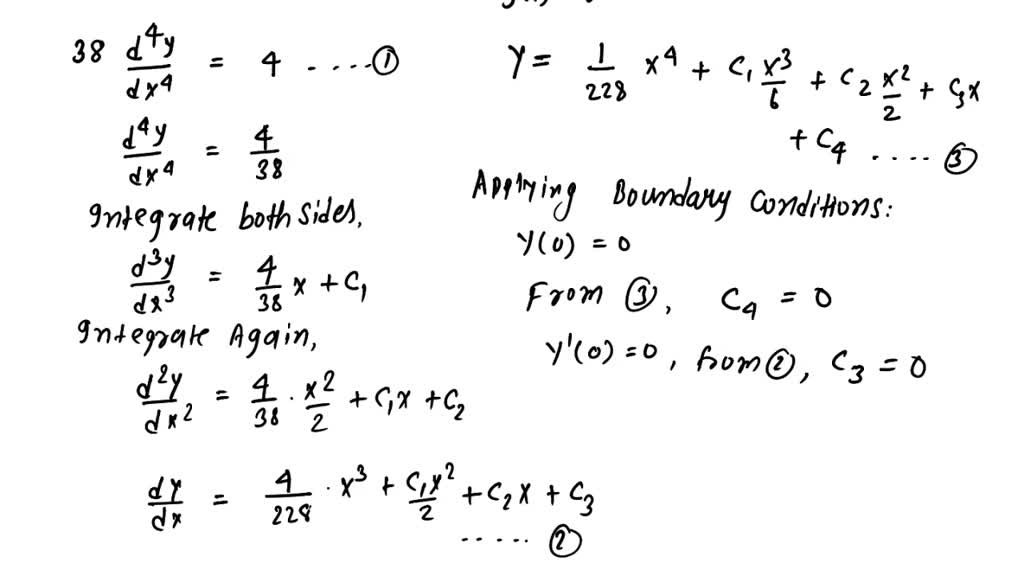 38 d⁴y/dx⁴ = 4 ....①
d⁴y/dx⁴ = 4/38
Integrate both sides,
d³y/dx³ = 4/38 x + C₁
Integrate Again,
d²y/dx² = 4/38 · x²/2 + C₁x + C₂
dy/dx = 4/228 · x³ + C₁x²/2 + C₂x + C₃
..... ②
Y = 1/228 x⁴ + C₁ x³/6 + C₂ x²/2 + C₃x
+ C₄ .... ③
Applying Boundary Conditions:
Y(0) = 0
From ③, C₄ = 0
Y'(0) = 0, from ②, C₃ = 0